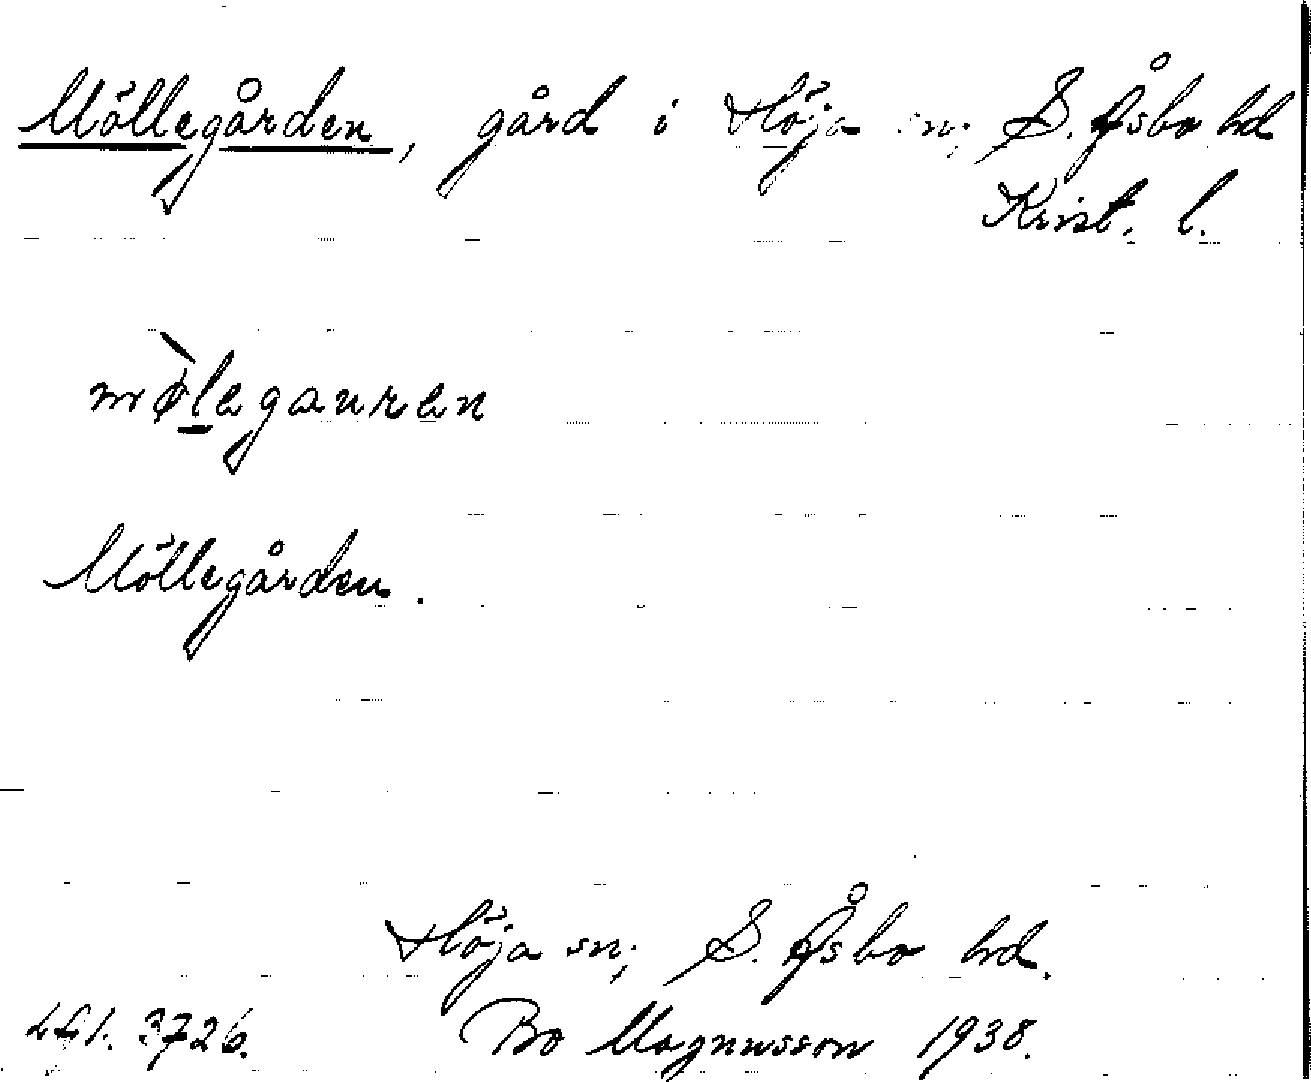 Möllegården, gård i Höja sn; S. Åsbo hd
Krist. l.
mø̀legauren
Möllegården.
Höja sn; S. Åsbo hd.
3726. Bo Magnusson 1938.